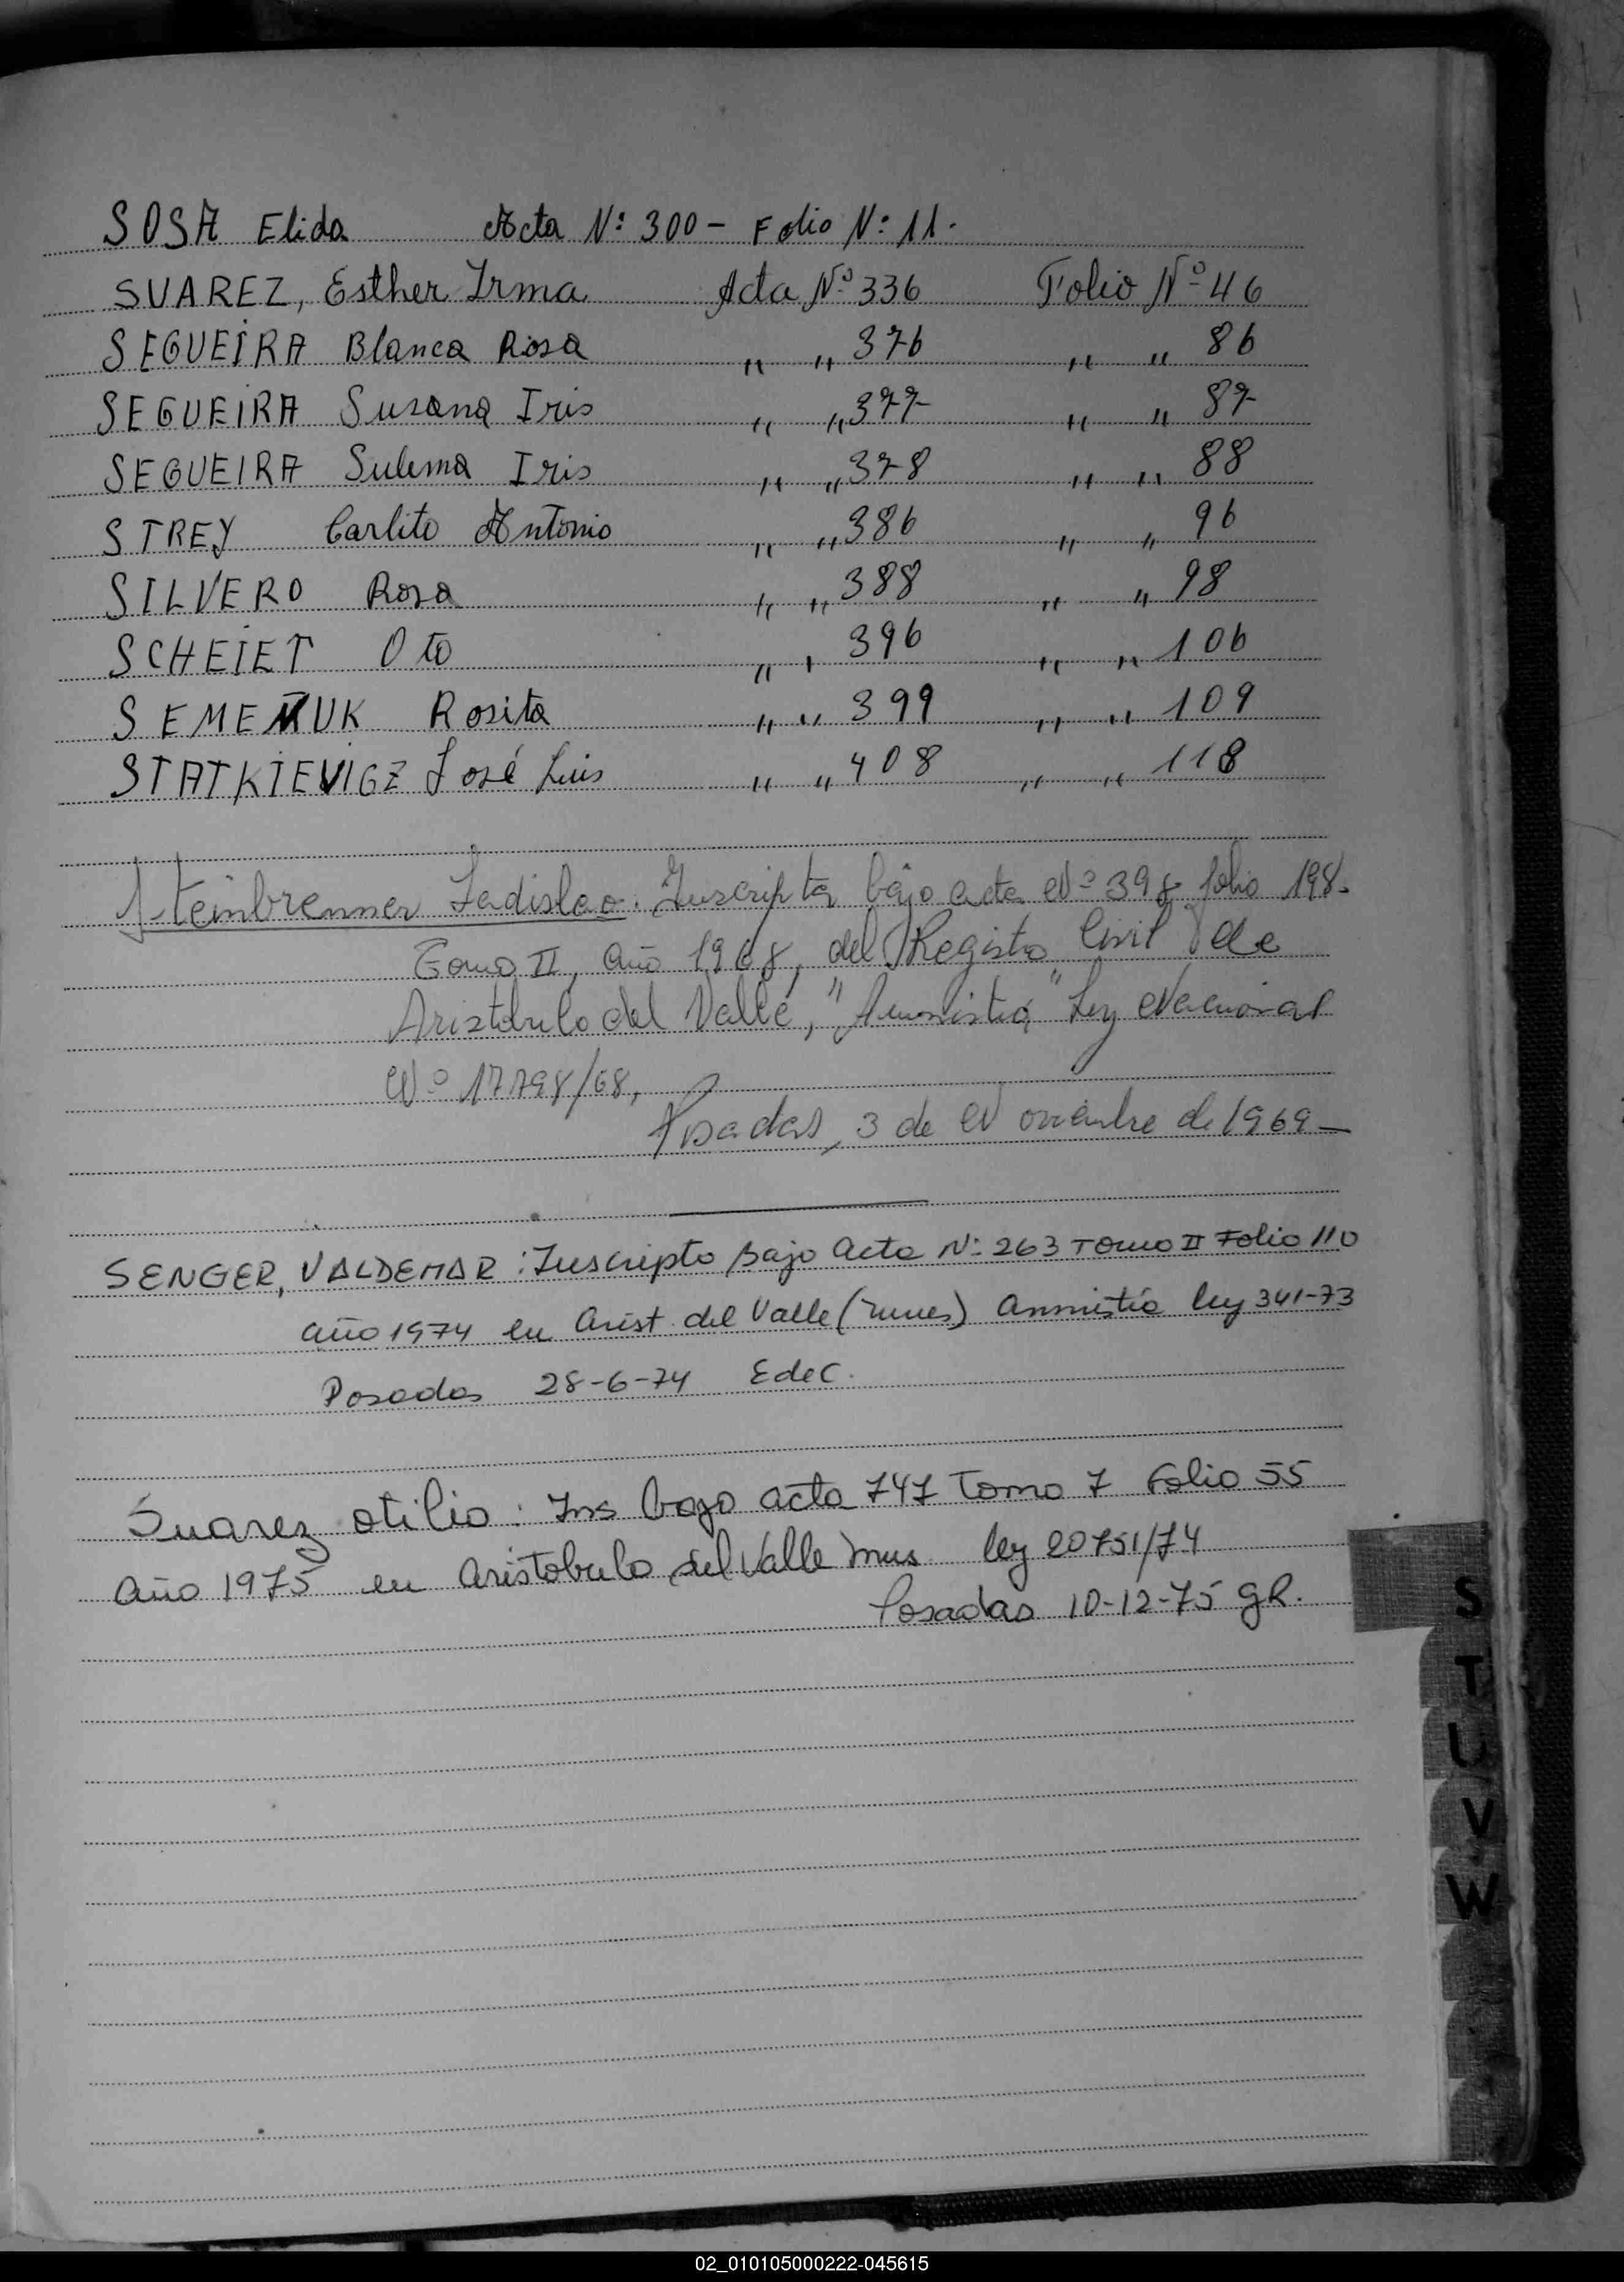 SOSA Elida Acta Nº 300 - Folio Nº 11.
SUAREZ, Esther Irma Acta Nº 336 Folio Nº 46
SEGUEIRA Blanca Rosa " " 376 " " 86
SEGUEIRA Susana Iris " " 377 " " 87
SEGUEIRA Sulema Iris " " 378 " " 88
STREY Carlito Antonio " " 386 " " 96
SILVERO Rosa " " 388 " " 98
SCHEIET Oto " " 396 " " 106
SEMENUK Rosita " " 399 " " 109
STATKIEVIGZ José Luis " " 408 " " 118
Steinbrenner Ladislao. Inscripta bajo acta Nº 398 folio 198.
Tomo II, año 1968, del Registro Civil de
Aristobulo del Valle, "Amnistia" Ley Nacional
Nº 17.798/68,
Posadas, 3 de Noviembre de 1969
SENGER, VALDEMAR: Inscripto bajo Acta Nº 263 Tomo II Folio 110
año 1974 en Arist. del Valle ( ) Amnistia ley 341-73
Posadas 28-6-74 EdeC.
Suarez otilio: Ins bajo acta 747 Tomo 7 Folio 55
año 1975 en Aristobulo del Valle Mnes ley 20751/74
Posadas 10-12-75 gR.
S
T
U
V
W
02_010105000222-045615